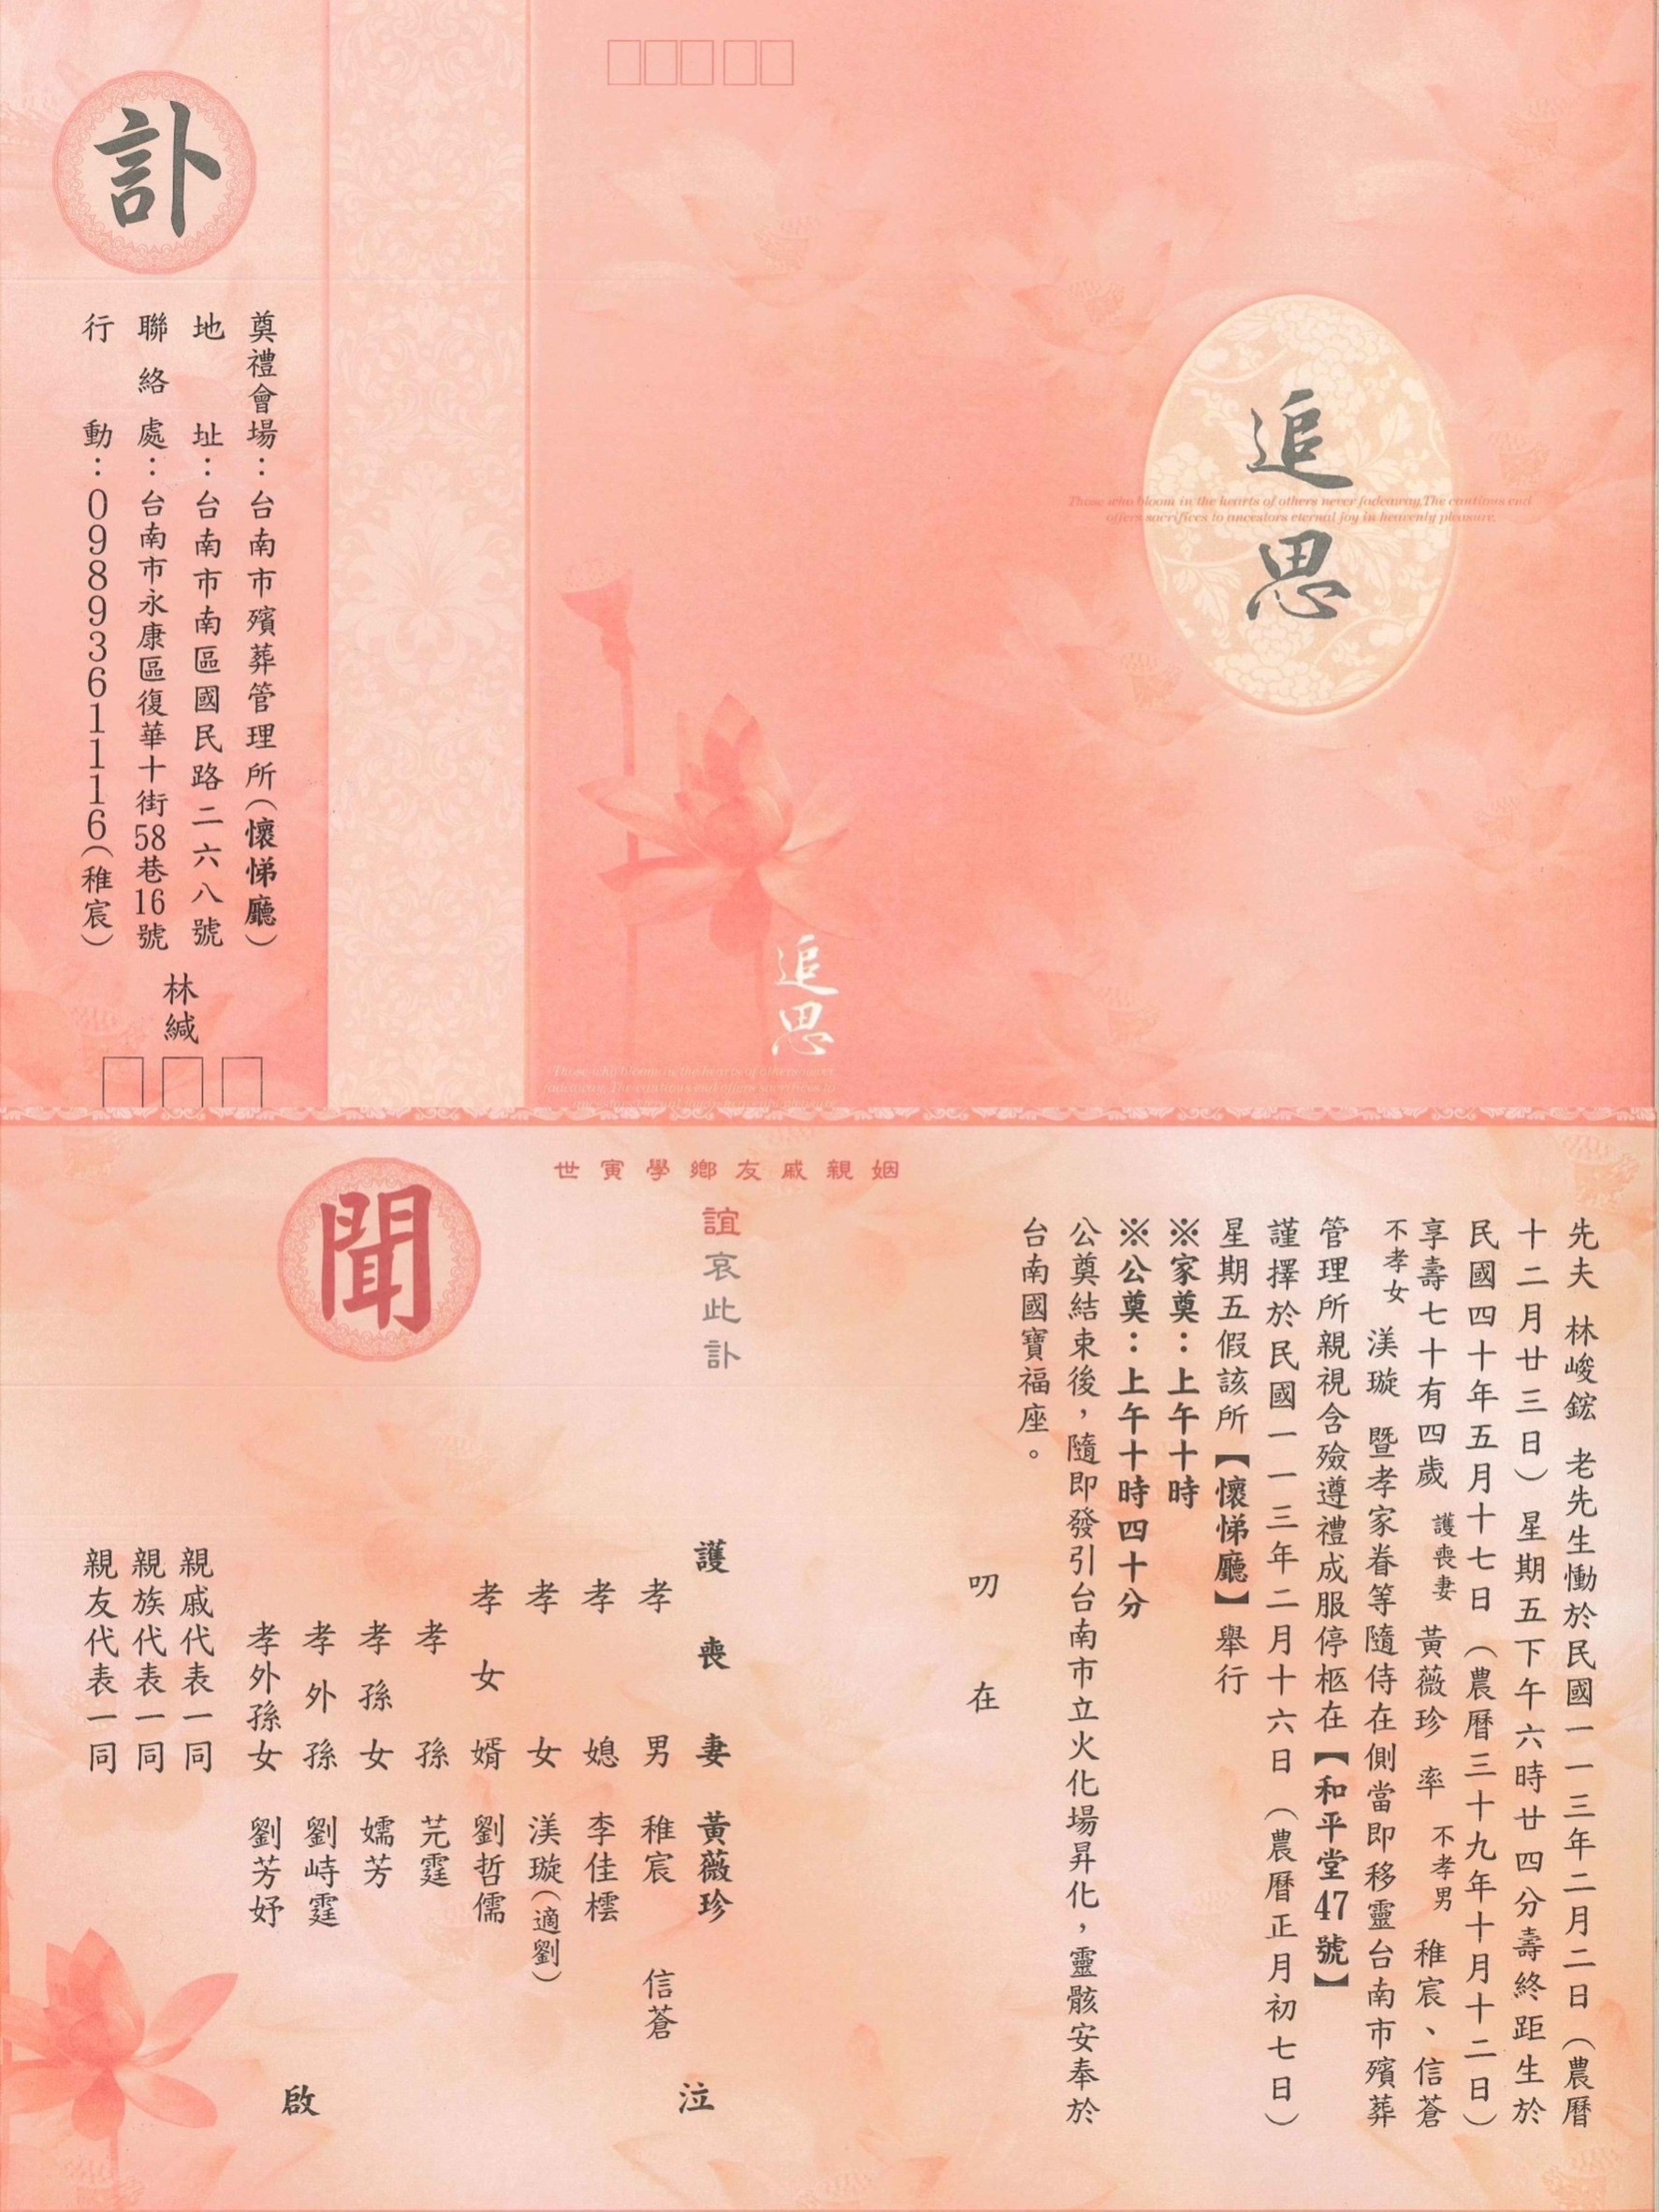 追思
Those who bloom in the hearts of others never fadeaway.The cautious end
offers sacrifices to ancestors eternal joy in heavenly pleasure.
追思
Those who bloom in the hearts of others never
fadeaway. The cautious end offers sacrifices to
訃
奠禮會場：台南市殯葬管理所（懷悌廳）
地址：台南市南區國民路二六八號
聯絡處：台南市永康區復華十街58巷16號
行動：0989361116（稚宸）
林緘
先夫 林峻鋐 老先生慟於民國一一三年二月二日（農曆
十二月廿三日）星期五下午六時廿四分壽終距生於
民國四十年五月十七日（農曆三十九年十月十二日）
享壽七十有四歲 護喪妻 黃薇珍 率 不孝男 稚宸、信蒼
不孝女 渼璇 暨孝家眷等隨侍在側當即移靈台南市殯葬
管理所親視含殮遵禮成服停柩在【和平堂47號】
謹擇於民國一一三年二月十六日（農曆正月初七日）
星期五假該所【懷悌廳】舉行
※家奠：上午十時
※公奠：上午十時四十分
公奠結束後，隨即發引台南市立火化場昇化，靈骸安奉於
台南國寶福座。
叨在
姻親戚友鄉學寅世
誼哀此訃
聞
護喪妻 黃薇珍
孝男 稚宸 信蒼
孝媳 李佳橒
孝女 渼璇（適劉）
孝女婿 劉哲儒
孝孫 芫霆
孝孫女 嬬芳
孝外孫 劉峙霆
孝外孫女 劉芳妤
泣
親戚代表一同
親族代表一同
親友代表一同
啟